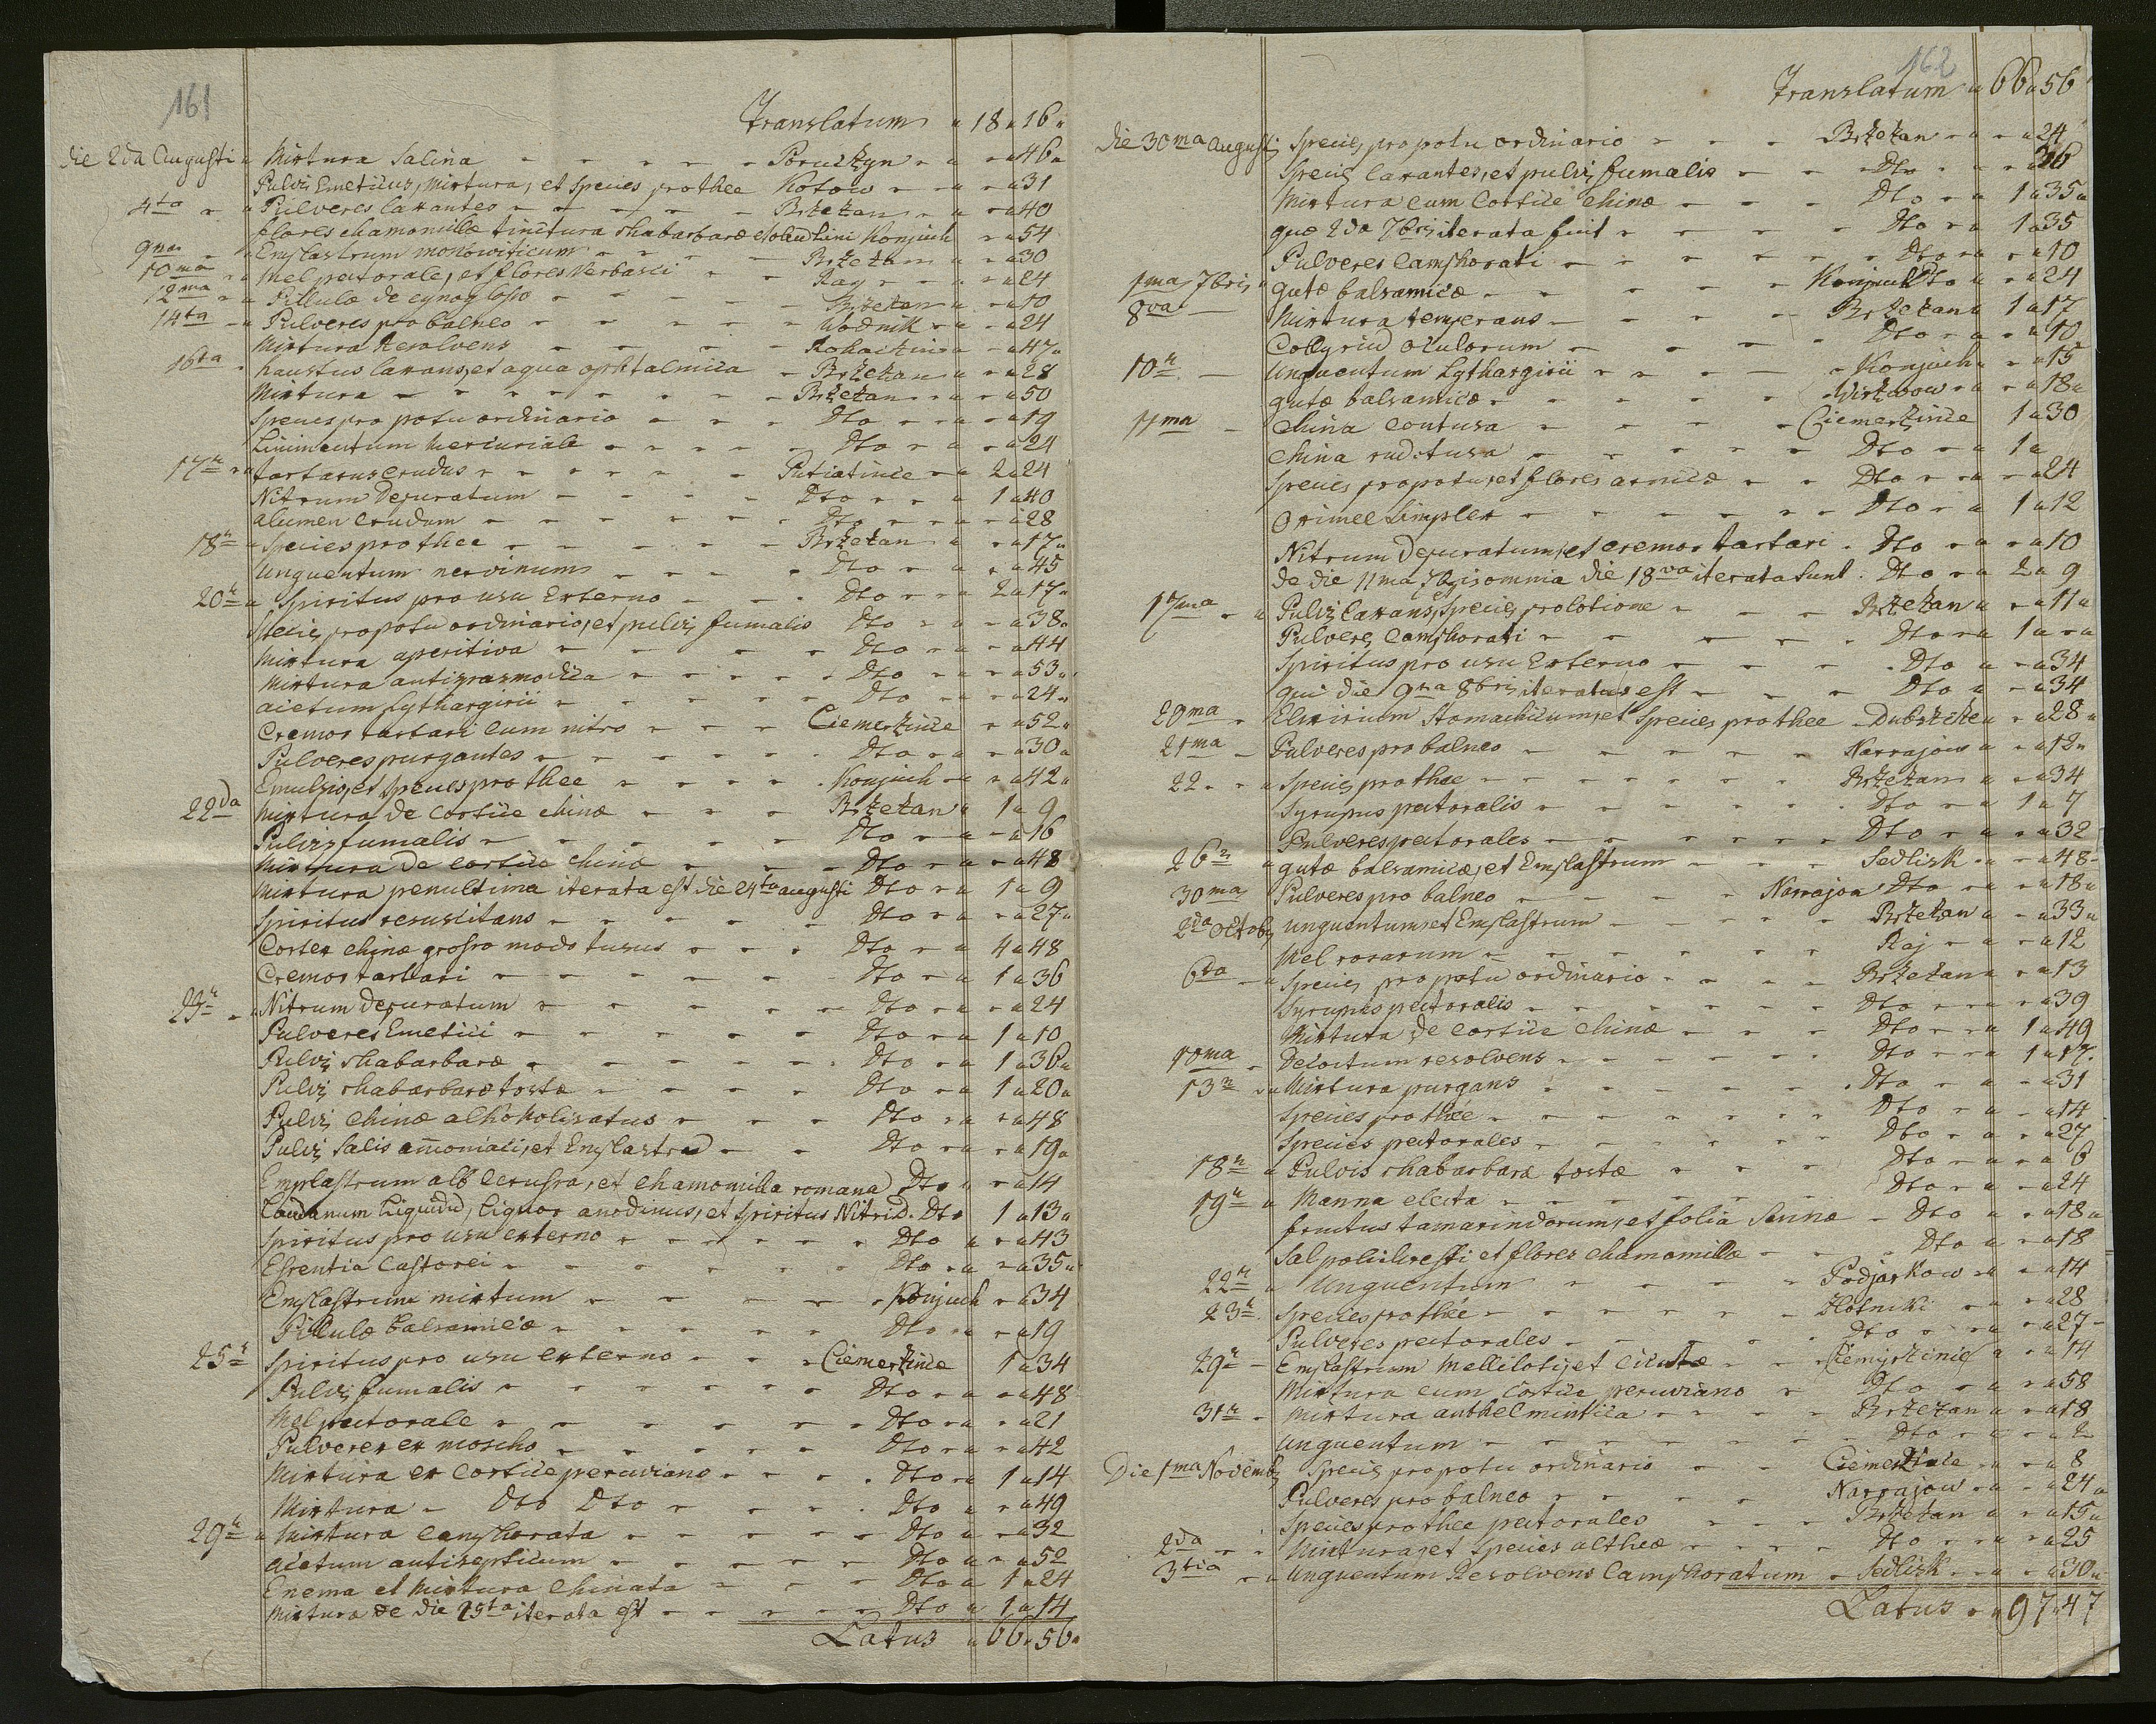 161
Translatum 18 16
die 2da Augusti Mixtura Salina Poruczyn 46
Pulvis Emeticus, Mixtura, et Species pro thee Kotow 31
4ta Pulveres laxantes Brzeżan 40
flores chamomillæ tinctura rhabarbaræ Konjuch 54
9na Emplastrum Brzeżan 30
10ma Mel pectorale, et flores Verbasci Ray 24
12ma Pillulæ de cynoglosso Brzeżan 10
14ta Pulveres pro balneo Wodnik 24
Mixtura Resolvens Rohaitin 47
16ta haustus laxans, et aqua ophtalmica Brzeżan 28
Mixtura Brzeżan 50
Species pro potu ordinario Dto 19
Linimentum Mercuriale Dto 24
17 tartarus crudus Putiatince 2 24
Nitrum Depuratum Dto 1 40
alumen Crudum Dto 28
18 Species pro thee Brzeżan 17
Unguentum nervinum Dto 45
20 Spiritus pro usu Externo Dto 2 17
Species pro potu ordinario, et pulvis fumalis Dto 38
Mixtura aperitiva Dto 44
Mixtura antispasmodica Dto 53
acetum Lythargirii Dto 24
Cremor tartari cum nitro Ciemerzince 52
Pulveres purgantes Dto 30
Emulsio, et Species pro thee Konjuch 42
22da Mixtura de Cortice chinæ Brzeżan 1 9
Pulvis fumalis Dto 16
Mixtura de Cortice Chinæ Dto 48
Mixtura penultima iterata est die 24ta augusti Dto 1 9
Spiritus resuscitans Dto 27
Cortex chinæ grosso modo tusus Dto 4 48
Cremor tartari Dto 1 36
23 Nitrum Depuratum Dto 24
Pulveres Emetici Dto 1 10
Pulvis rhabarbaræ Dto 1 36
Pulvis rhabarbaræ tostæ Dto 1 20
Pulvis chinæ alkoholisatus Dto 48
Pulvis Salis amoniaci, et Emplastrum Dto 19
Emplastrum alb Cerussa, et chamomilla romana Dto 14
Laudanum Liquidum, Liquor anodinus, et Spiritus Nitri D. Dto 1 13
Spiritus pro usu externo Dto 43
Essentia Castorei Dto 35
Emplastrum mixtum Konjuch 34
Pillulæ balsamicæ Dto 19
25 Spiritus pro usu externo Ciemerzince 1 34
Pulvis fumalis Dto 48
Mel pectorale Dto 21
Pulveres ex moscho Dto 42
Mixtura ex Cortice peruviano Dto 1 14
Mixtura Dto Dto Dto 49
29 Mixtura Camphorata Dto 32
acetum antisepticum Dto 52
Enema et Mixtura Chinata Dto 1 24
Mixtura de die 25ta iterata est Dto 1 14
Latus 66 56
162
Translatum 66 56
die 30ma augusti Species pro potu ordinario Brzeżan 24
Species laxantes, et pulvis fumalis Dto 36
Mixtura cum Cortice Chinæ Dto 1 35
quæ 2da 7bris iterata fuit Dto 1 35
Pulveres Camphorati Dto 10
1ma 7bris gutæ balsamicæ Konjuch Dto 24
8va Mixtura temperans Brzeżan 1 17
Collyrium oculorum Dto 10
10 Unguentum Lythargirii Konjuch 15
gutæ balsamicæ 18
11ma China contusa Ciemerzince 1 30
China rud. tusa Dto 1
Species pro potu, et flores arnicæ Dto 24
Oximel Simplex Dto 1 12
Nitrum Depuratum, et cremor tartari Dto 10
de die 11ma 7bris omnia die 18va iterata sunt Dto 2 9
17ma Pulvis laxans, Species pro lotione Brzeżan 11
Pulveres Camphorati Dto 1
Spiritus pro usu Externo Dto 34
qui die 9na 8bris iteratus est Dto 34
20ma Elixirium Stomachicum, et Species pro thee 28
21ma Pulveres pro balneo Narajow 12
22 Species pro thee Brzeżan 34
Syrupus pectoralis Dto 1 7
Pulveres pectorales Dto 32
26 gutæ balsamicæ, et Emplastrum Sedlisk 48
30ma Pulveres pro balneo Narrajow Dto 18
2da Octobris unguentum, et Emplastrum Brzeżan 33
Mel rosarum Raj 12
6ta Species pro potu ordinario Brzeżan 13
Syrupus pectoralis Dto 39
Mixtura de Cortice Chinæ Dto 1 49
10ma Decoctum resolvens Dto 1 17
13 Mixtura purgans Dto 31
Species pro thee Dto 14
Species pectorales Dto 27
18 Pulvis rhabarbaræ tostæ Dto 6
19 Manna electa Dto 24
fructus tamarindorum, et folia Sennæ Dto 18
Sal polichresti et flores chamomillæ Dto 18
22 Unguentum Podjarkow 14
23 Species pro thee Złotniki 28
Pulveres pectorales Dto 27
29 Emplastrum Melliloti, et Cicutæ 14
Mixtura cum Cortice peruviano Dto 58
31 Mixtura anthelmintica Brzeżan 18
Unguentum Dto 2
Die 1ma Novembris Species pro potu ordinario Ciemerzince 8
Pulveres pro balneo Narrajow 24
Species pro thee pectorales Brzeżan 15
2da Mixtura, et Species altheæ Dto 25
3tia Unguentum Resolvens Camphoratum Sedlisk 30
Latus 97 47